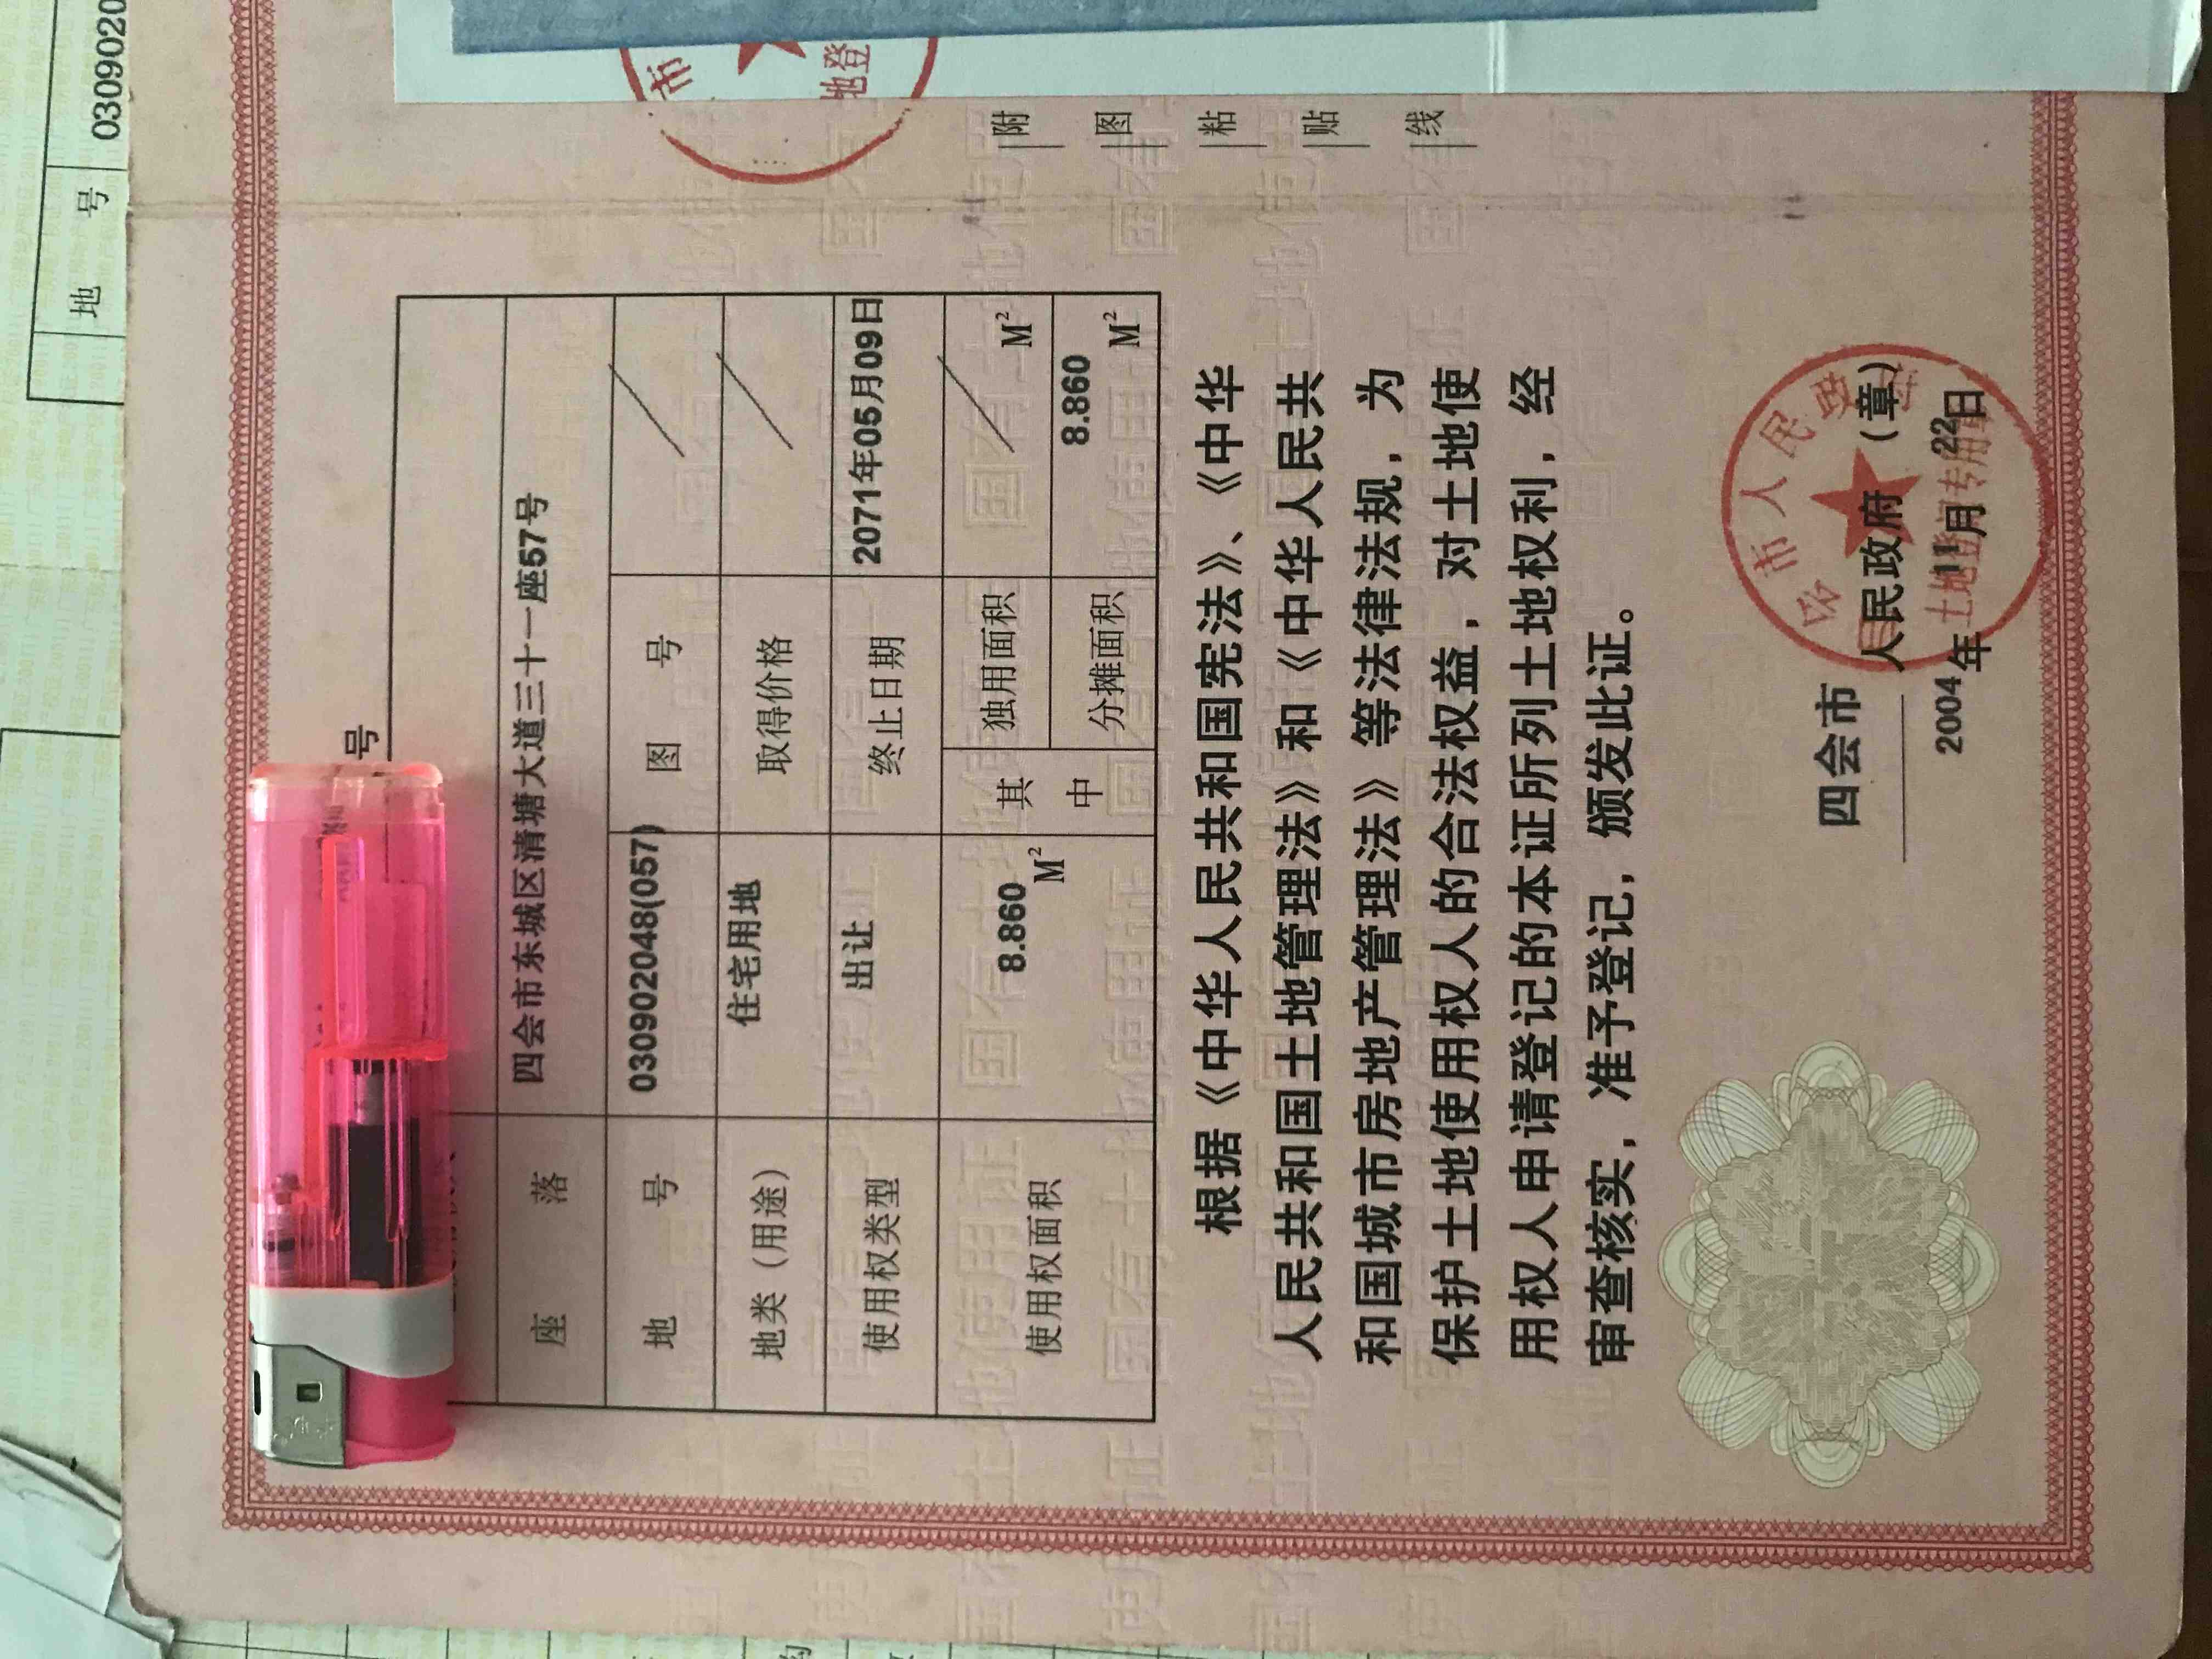 地 号 0309020
号
座 落 四会市东城区清塘大道三十一座57号
地 号 030902048(057) 图 号
地类（用途） 住宅用地 取得价格
使用权类型 出让 终止日期 2071年05月09日
使用权面积 8.860 M² 其中 独用面积 M²
分摊面积 8.860 M²
根据《中华人民共和国宪法》、《中华
人民共和国土地管理法》和《中华人民共
和国城市房地产管理法》等法律法规，为
保护土地使用权人的合法权益，对土地使
用权人申请登记的本证所列土地权利，经
审查核实，准予登记，颁发此证。
四会市 人民政府（章）
2004年11月22日
市人民
土地登 专用
附 图 粘 贴 线
市
地登